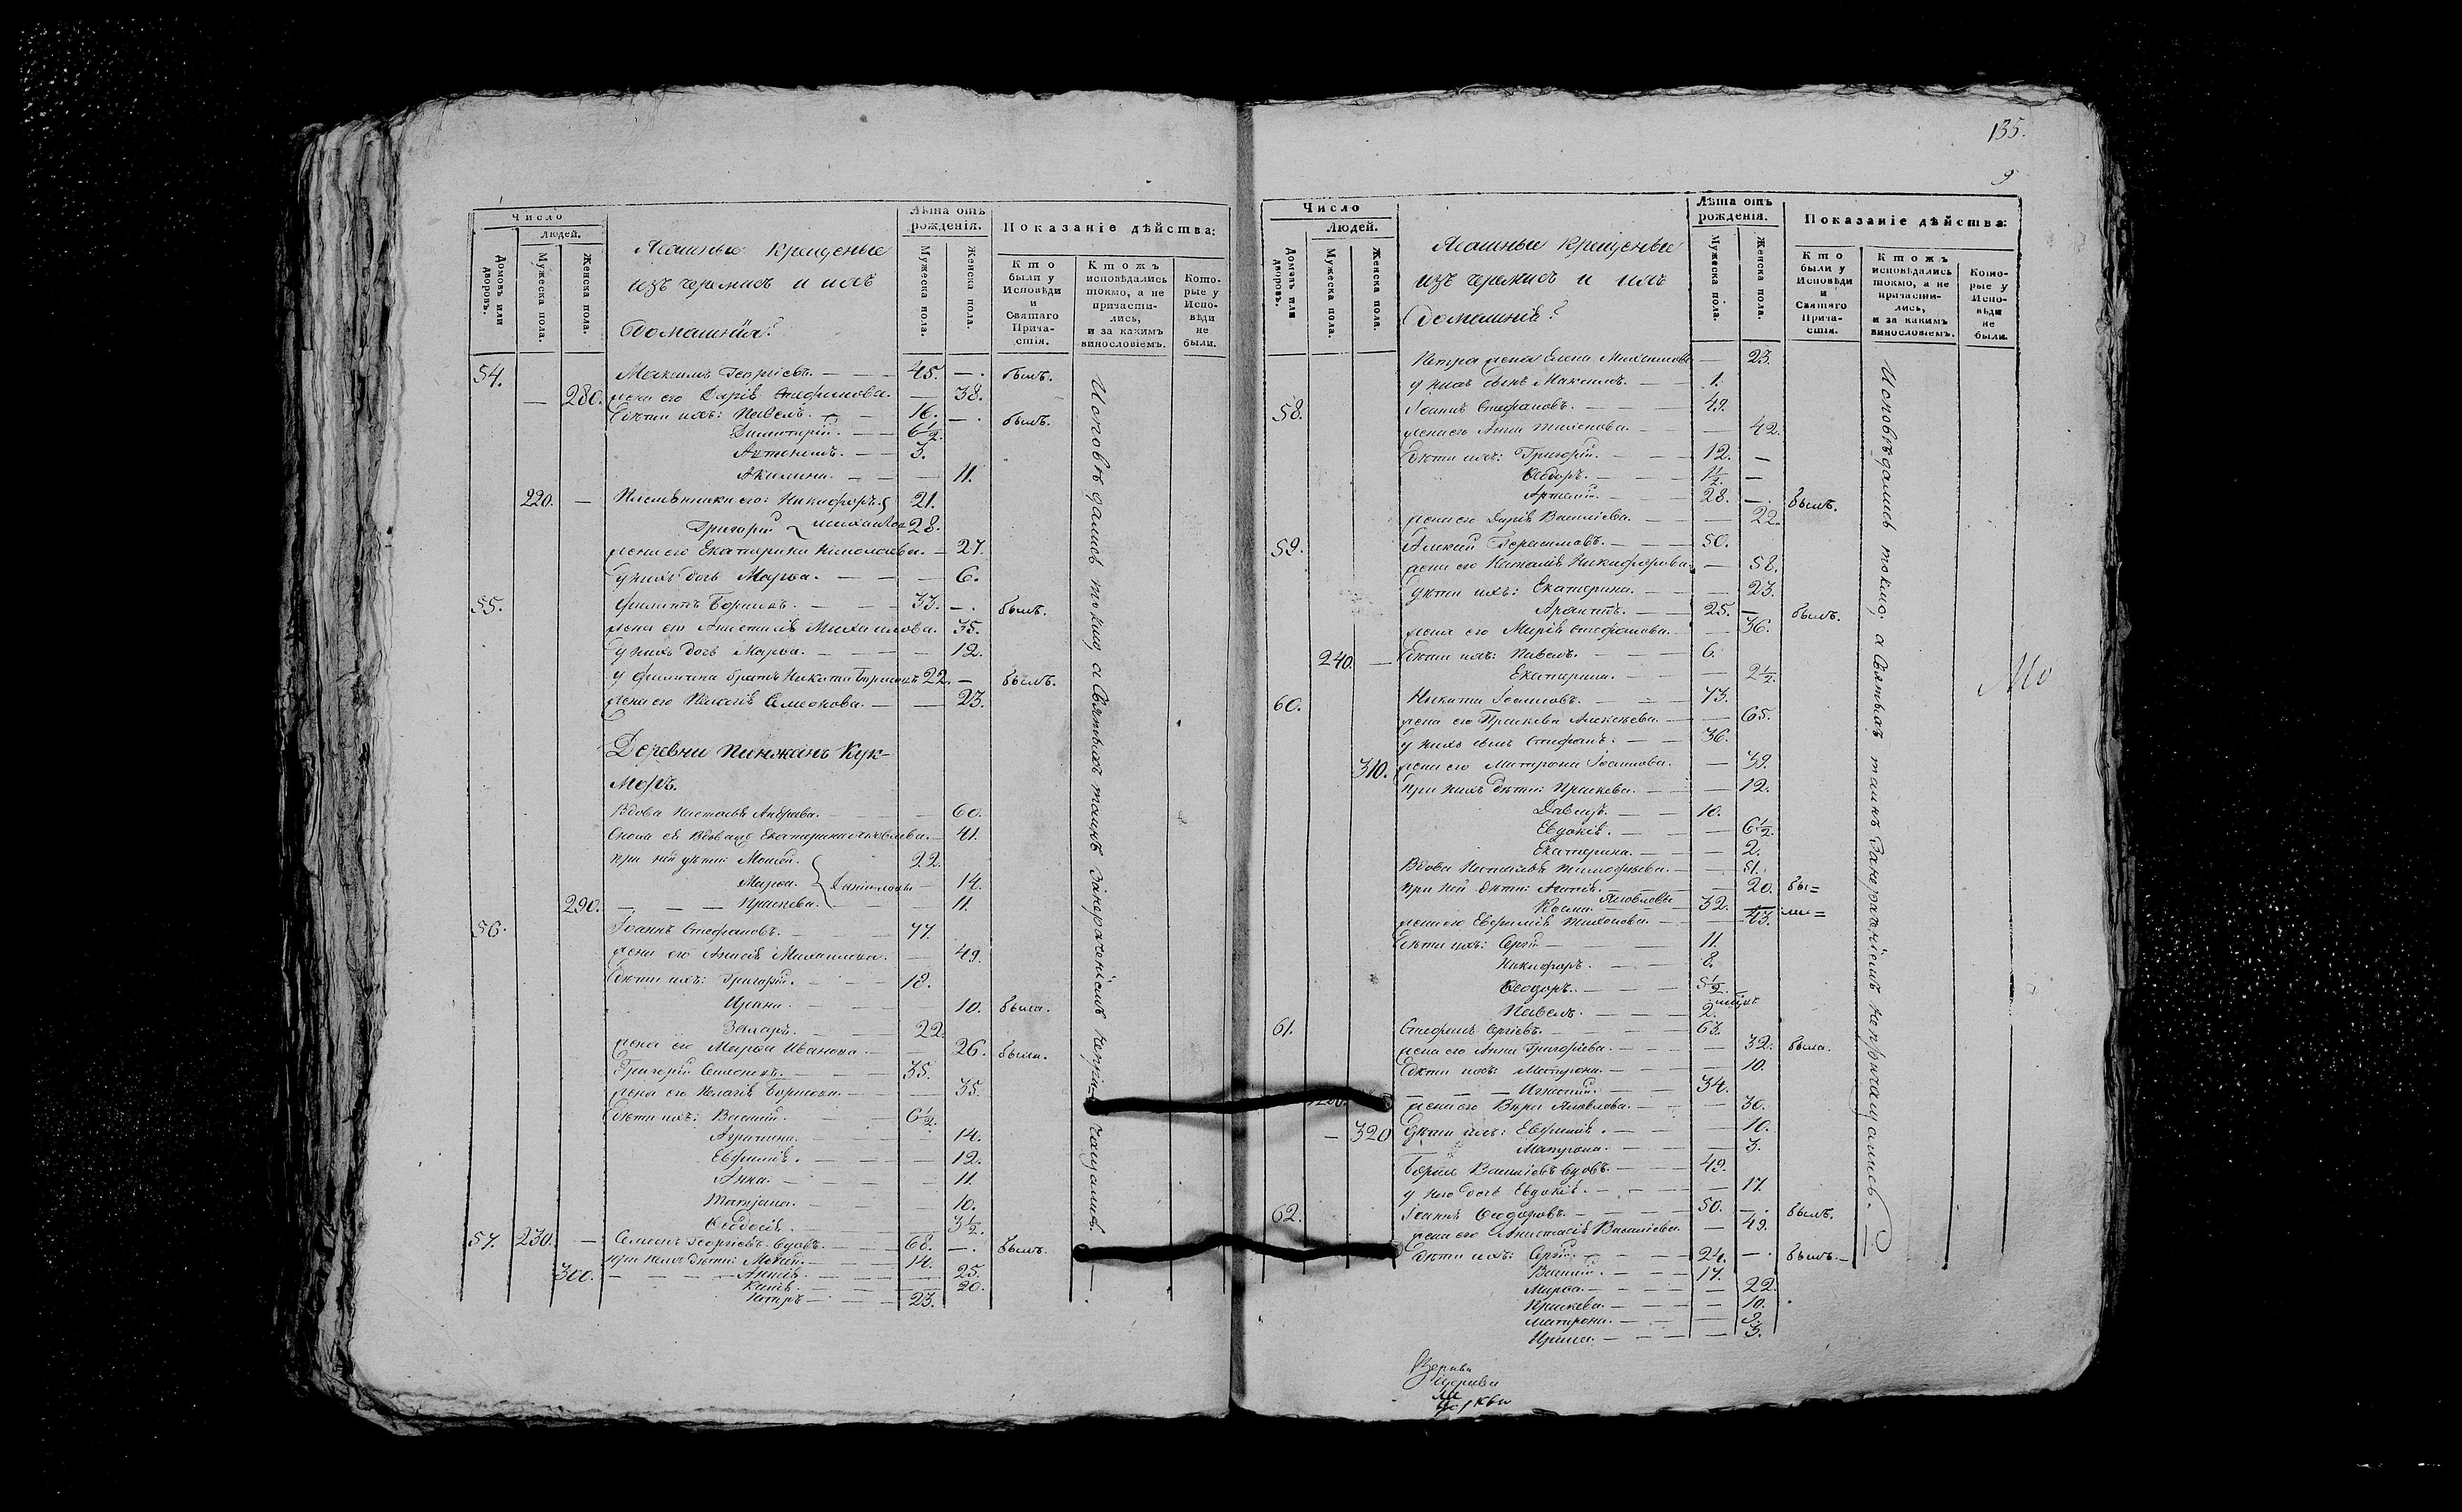 Число
Людей.
Домовъ или дворовъ.
Мужеска пола.
Женска пола.
Ясашные крещеные
изъ черемисъ и ихъ
домашнія:
Лѣта отъ рожденія.
Мужеска пола.
Женска пола.
Показаніе дѣйства:
Кто были у Исповѣди и Святаго Причастія.
Ктожъ исповѣдались токмо, а не причастились, и за какимъ винословіемъ.
Которые у Исповѣди не были.
54. Максимъ Георгіевъ. — 45. — былъ.
— 280. жена его Дарія Стефанова. — 38.
Дѣти ихъ: Павелъ. — 16. — былъ.
Димитрій. — 6½.
3.
Акилина. — 11.
220. — Племянники его: Никифоръ 21.
Григорій Михайловы 28.
жена его Екатерина Николаева. — 27.
у нихъ дочь Марѳа. — 6.
55. Филиппъ Борисовъ. — 33. — былъ.
жена его Анастасія Михайлова. 35.
у нихъ дочь Марѳа. — 12.
у Филиппа братъ Никита Борисовъ 22. — былъ.
жена его Пелагія Симеонова. — 23.
Деревни Пинжанъ Кук-
моръ.
Вдова Наталья Андреева. — 60.
Сноха ея вдова Екатерина Яковлева. — 41.
при ней дѣти: Моисей. 22.
Марѳа. Даниловы — 14.
290. — Праскева. — 11.
56. Іоаннъ Стефановъ. — 77.
жена его Анисія Михайлова. — 49.
Дѣти ихъ: Григорій. — 18.
10. была.
Захаръ. — 22.
жена его Марѳа Иванова — 26. была.
Григорій Симеоновъ. — 35.
жена его Пелагія Борисова. — 35.
Дѣти ихъ: Василій. 6½.
14.
Евфимія. — 12.
Анна. — 11.
Татіана. — 10.
Ѳеодосія. — 3½.
57. 230. — Симеонъ Георгіевъ вдовъ. — 68. — былъ.
при немъ дѣти: 14.
300. — Анисія. — 25.
20.
Петръ — 23.
Исповѣдались токмо, а Святыхъ таинъ за нераченіемъ непричащались.
135.
9
Число
Людей.
Домовъ или дворовъ.
Мужеска пола.
Женска пола.
Ясашные крещеные
изъ черемисъ и ихъ
домашнія:
Лѣта отъ рожденія.
Мужеска пола.
Женска пола.
Показаніе дѣйства:
Кто были у Исповѣди и Святаго Причастія.
Ктожъ исповѣдались токмо, а не причастились, и за какимъ винословіемъ.
Которые у Исповѣди не были.
Петра жена Елена Михайлова — 23.
у нихъ сынъ Максимъ. — 1.
58. Іоаннъ Стефановъ. — 49.
жена его Анна Тихонова. — 42.
Дѣти ихъ: Григорій. — 12. —
Ѳедоръ. — 1½. —
28. — былъ.
жена его Дарія Васильева. — 22.
59. Алексій Герасимовъ. — 50.
жена его Наталія Никифорова. — 58.
Дѣти ихъ: Екатерина. — 23.
25. — былъ.
жена его Марія Стефанова. — 36.
240. — Дѣти ихъ: Павелъ. — 6.
Екатерина. — 2½.
60. Никита Іоанновъ. — 73.
жена его Праскева Алексѣева. — 65.
у нихъ сынъ Стефанъ. — 36.
310. жена его Матрона Іоаннова. — 39.
при нихъ дѣти: Праскева. — 12.
Давидъ. — 10.
Евдокія. — 6½.
Екатерина. — 2.
Вдова Наталья Тимофеева. — 51.
при ней дѣти: 20. бы=
Косма. Яковлевы 32. — ли=
жена его Евфимія Тихонова. — 43.
Дѣти ихъ: Сергій — 11.
Никифоръ. — 8.
Ѳеодоръ. — 5½.
Павелъ. — 2.
61. Стефанъ Сергіевъ. — 63.
жена его Анна Григорьева. — 32. была.
Дѣти ихъ: Матрона. — 10.
Игнатій. — 34.
жена его Вѣра Яковлева. — 30.
— 320 Дѣти ихъ: Евфимія. — 10.
Матрона. — 3.
Борисъ Васильевъ вдовъ. — 49.
у него дочь Евдокія. — 17.
62. Іоаннъ Ѳеодоровъ. — 50. — былъ.
жена его Анастасія Васильева. — 49.
Дѣти ихъ: Сергій. — 24. — былъ. —
Василій. — 17.
Марѳа. — 22.
Праскева. — 10.
Матрона. — 9.
Ирина. — 3.
Исповѣдались токмо, а Святыхъ таинъ за нераченіемъ непричащались.